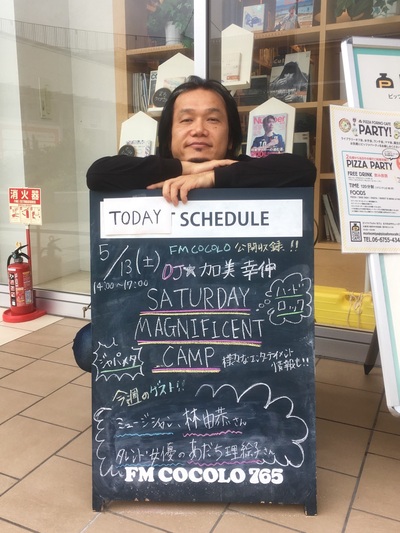 TODAY T SCHEDULE
5/13(土)
14:00~17:00
FM COCOLO 公開収録!!
DJ★加美幸伸
SATURDAY
MAGNIFICENT
CAMP
ハードロック
ジャパメタ
様々なエンターテイメント
情報も!!
今週のゲスト!!
ミュージシャン、林由恭さん
タレント・女優のあだち理絵子さん
FM COCOLO 765
消火器
PARTY!
PIZZA PARTY
FREE DRINK
TIME
FOODS
TEL 06-6755-43